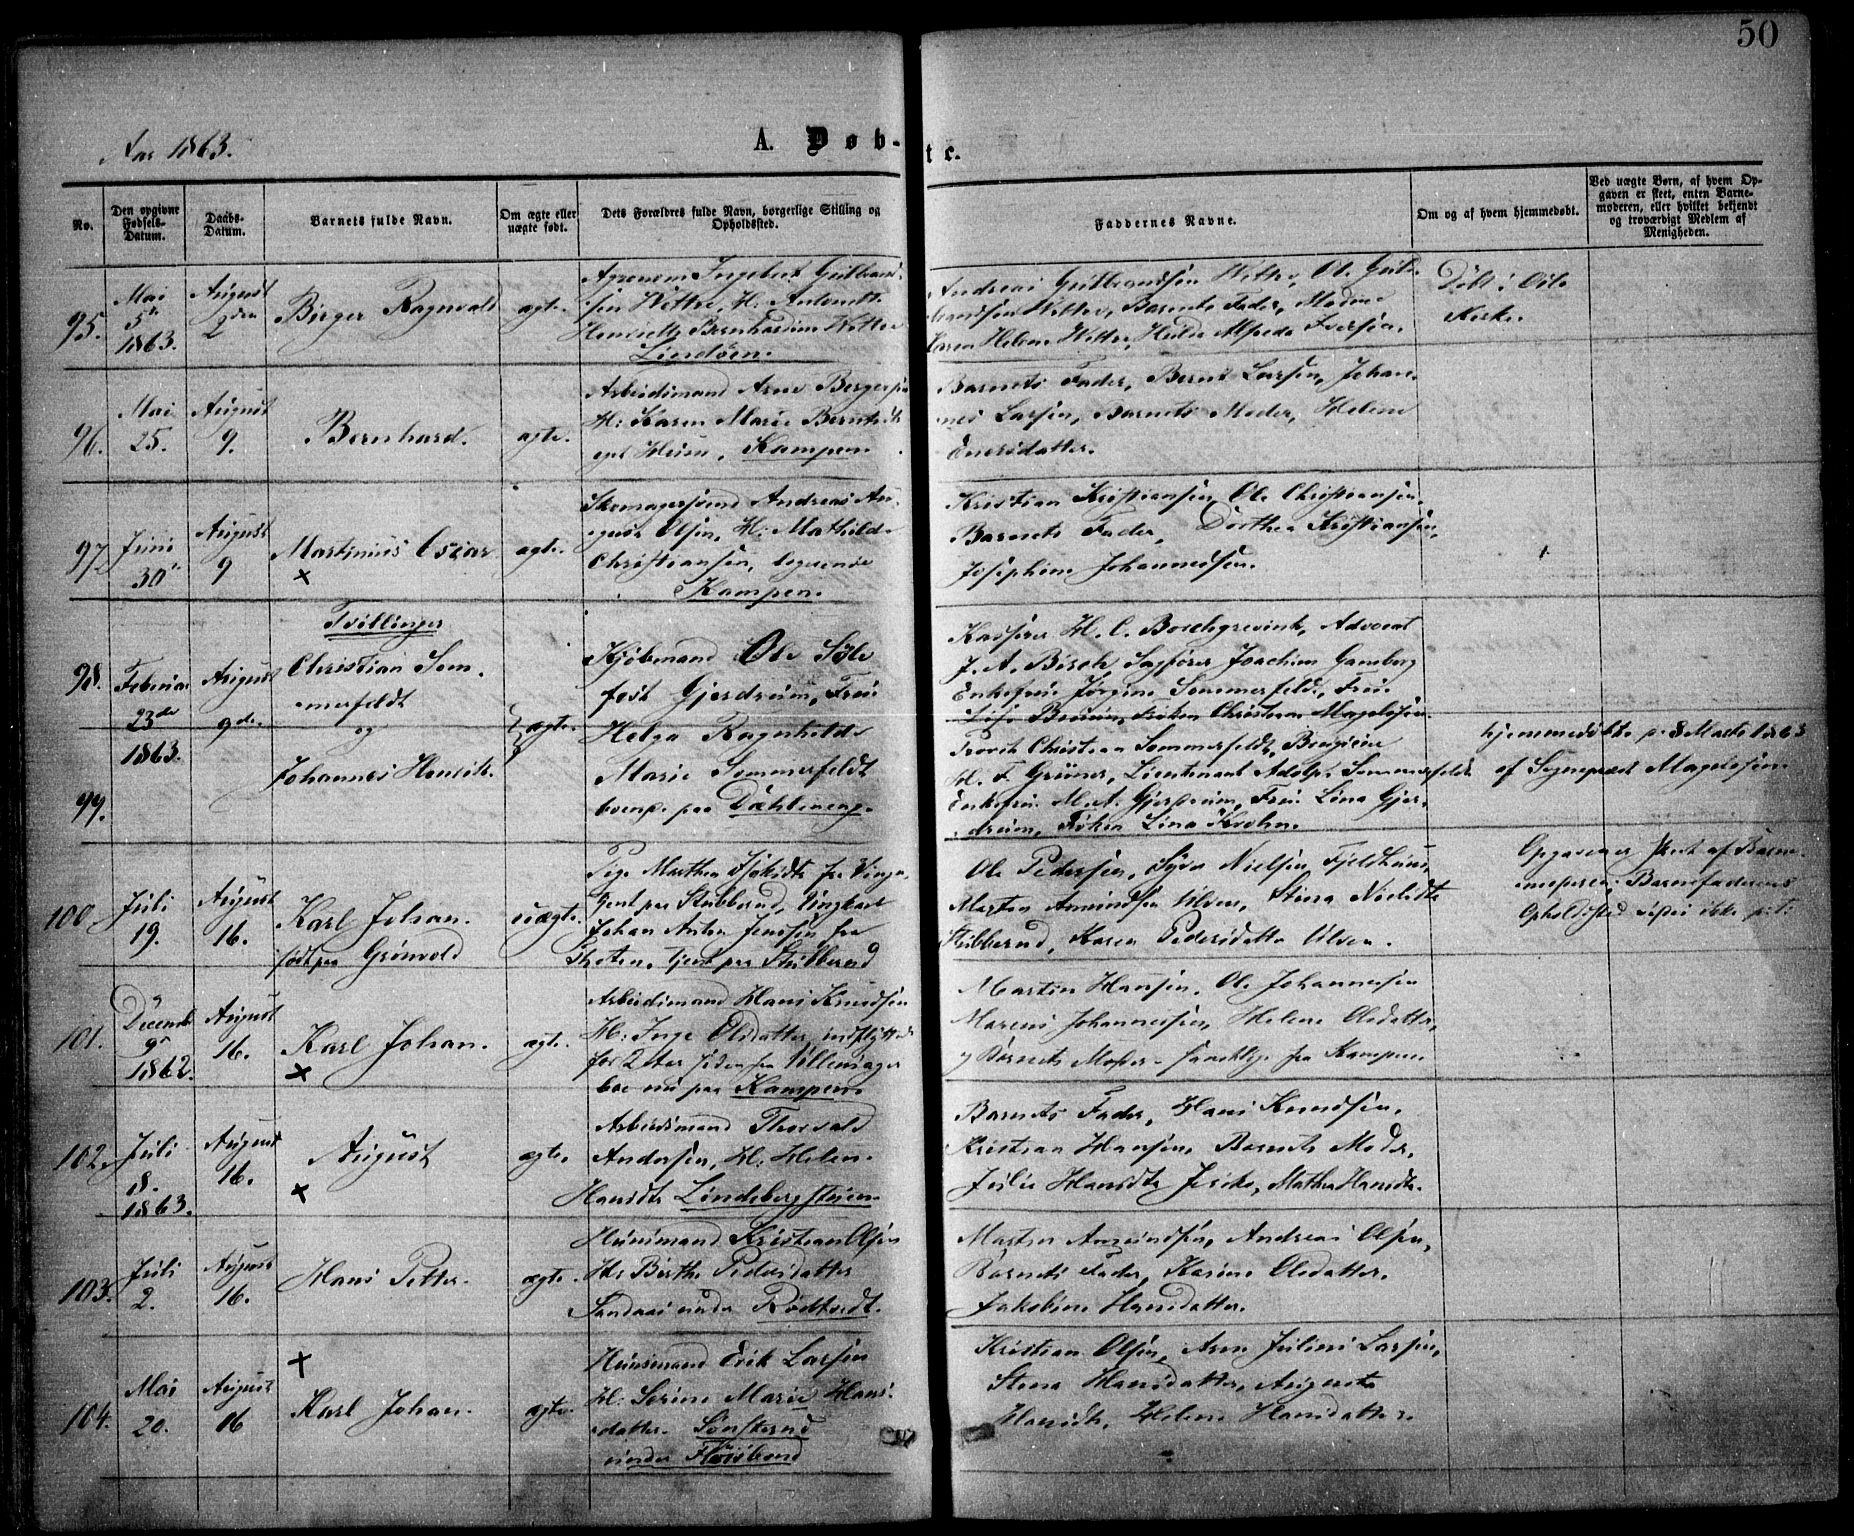 50
Aar 1863.
A. Døb-
te.
No.
Den opgivne Fødsels-Datum.
Daabs-Datum.
Barnets fulde Navn.
Om ægte eller uægte født.
Dets Forældres fulde Navn, borgerlige Stilling og Opholdssted.
Faddernes Navne.
Om og af hvem hjemmedøbt.
Ved uægte Børn, af hvem Opgaven er skeet, enten Barnemoderen, eller hvilket bekjendt og troværdigt Medlem af Menigheden.
95.
Mai
5te
1863.
August
2den
Birger Ragnvald
ægte.
Agronom Ingebert Gulbrand-
sen Wittre, H:
Henriette Bernhardine Wittre
Lindøen.
Andreas Gulbrandsen Wittre, Ole Gul-
brandsen Wittre, Barnets Fader, Madme
Karen Helene Wittre, Hilda Alfreda Iversen.
Døbt i Oslo
Kirke.
96.
Mai
25.
August
9.
Bernhard.
ægte.
Arbeidsmand Arne Bergersen
H: Karen Marie Berntsdt
Kampen
Barnets Fader, Bernt Larsen, Johan-
nes Larsen, Barnets Moder, Helene
Enersdatter.
97
Juni
30te
August
9
Martinius Oscar
×
ægte.
Skomagersvend Andreas Au-
gust Olsen, H: Mathilde
Christiansen, logerende
Kampen.
Kristian Kristiansen, Ole Christiansen,
Barnets Fader, Dorthea Kristiansen,
Josephine Johannessen.
Tvillinger
98.
Februar
23de
1863.
August
9de.
Christian Som-
merfeldt
og
Johannes Henrik.
99.
ægte.
Kjøbmand Ole Syle-
fest Gjerdrum, Frue
Helga Ragnhilda
Marie Sommerfeldt
boende paa Dæhleneng.
Kasserer H. C. Borchgrevink, Advocat
J. A. Birch Sagfører Joachim Gamborg
Enkefrue Jørgine Sommerfeldt, Frue
Bruun, Frøken Christiane Magelssen.
Provst Christian Sommerfeldt,
H. F. Grüner, Lieutenant Adolph Sommerfeldt
Enkefrue M. A. Gjerdrum, Frue Lina Gjer-
drum, Frøken Lina Kvolm.
hjemmedøbte p. 8 Marts 1863
af Sognepræst Magelssen.
100
Juli
19.
August
16.
Karl Johan.
født paa Grønvold
uægte.
Pige Marthea Isaksdt fra Vinger,
tjent paa Stubberud, Ungkarl
Johan Anton Jensen fra
Thoten, tjent paa Stubberud
Ole Pedersen, Syver Nielsen, Fjeldhuus,
Martin Amundsen Ulven, Stina Nielsdt
Stubberud, Karen Pedersdatter Ulven.
Opgaven er skeet af Barne-
moderen; Barnefaderens
Opholdssted vides ikke
101.
Decemb
9de
1862.
August
16.
Karl Johan.
×
ægte.
Arbeidsmand Hans Knudsen
H: Inge Olsdatter, indflyttede
for 2 Aar siden fra Ullensager
boe nu paa Kampen.
Martin Hansen, Ole Johannesen
Marens Johannessen, Helene Olsdatter,
og Barnets Moder – samtlige fra Kampen
102.
Juli
8.
1863.
August
16.
August
×
ægte.
Arbeidsmand Thorvald
Andersen, H: Helene
Hansdt Lindebergstuen
Barnets Fader, Hans Knudsen,
Kristian Hansen, Barnets Moder,
Julie Hansdt, Mathea Hansdt.
103.
Juli
2.
August
16.
Hans Petter.
ægte.
Huusmand Kristian Olsen
H: Berthe Pedersdatter
Sandaas under Rødtvedt.
Martin Amundsen, Andreas Olsen,
Barnets Fader, Karine Olsdatter,
Jakobine Hansdatter.
104.
Mai
20.
August
16
×
Karl Johan.
ægte.
Huusmand Erik Larsen
H: Serine Marie Hans-
datter. Sønsterud
under Flaisberd
Kristian Olsen, Arne Julius Larsen,
Stena Hansdatter, Auguste
Hansdt, Helene Hansdatter.